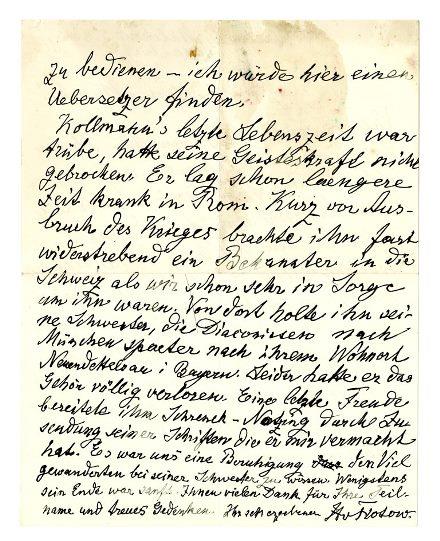 zu bedienen – ich würde hier einen
Uebersetzer finden.
Kollmann's letzte Lebenszeit war
trübe, hatte seine Geisteskraft nicht
gebrochen. Er lag schon laengere
Zeit krank in Rom. Kurz vor Aus-
bruch des Krieges brachte ihn fast
widerstrebend ein Bekannter in die
Schweiz als wir schon sehr in Sorge
um ihn waren. Von dort holte ihn sei-
ne Schwester, die Diaconissen nach
München spaeter nach ihrem Wohnort
Neuendettelsau i Bayern. Leider hatte er das
Gehör völlig verloren. Eine letzte Freude
bereitete ihm Schrenck-Notzing durch Zu
sendung seiner Schriften die er mir vermacht
hat. Es war uns eine Beruhigung den Viel
gewanderten bei seiner Schwester zu wissen. Wenigstens
sein Ende war sanft. Ihnen vielen Dank für Ihre Teil-
name und treues Gedenken. Ihr sehr ergebener